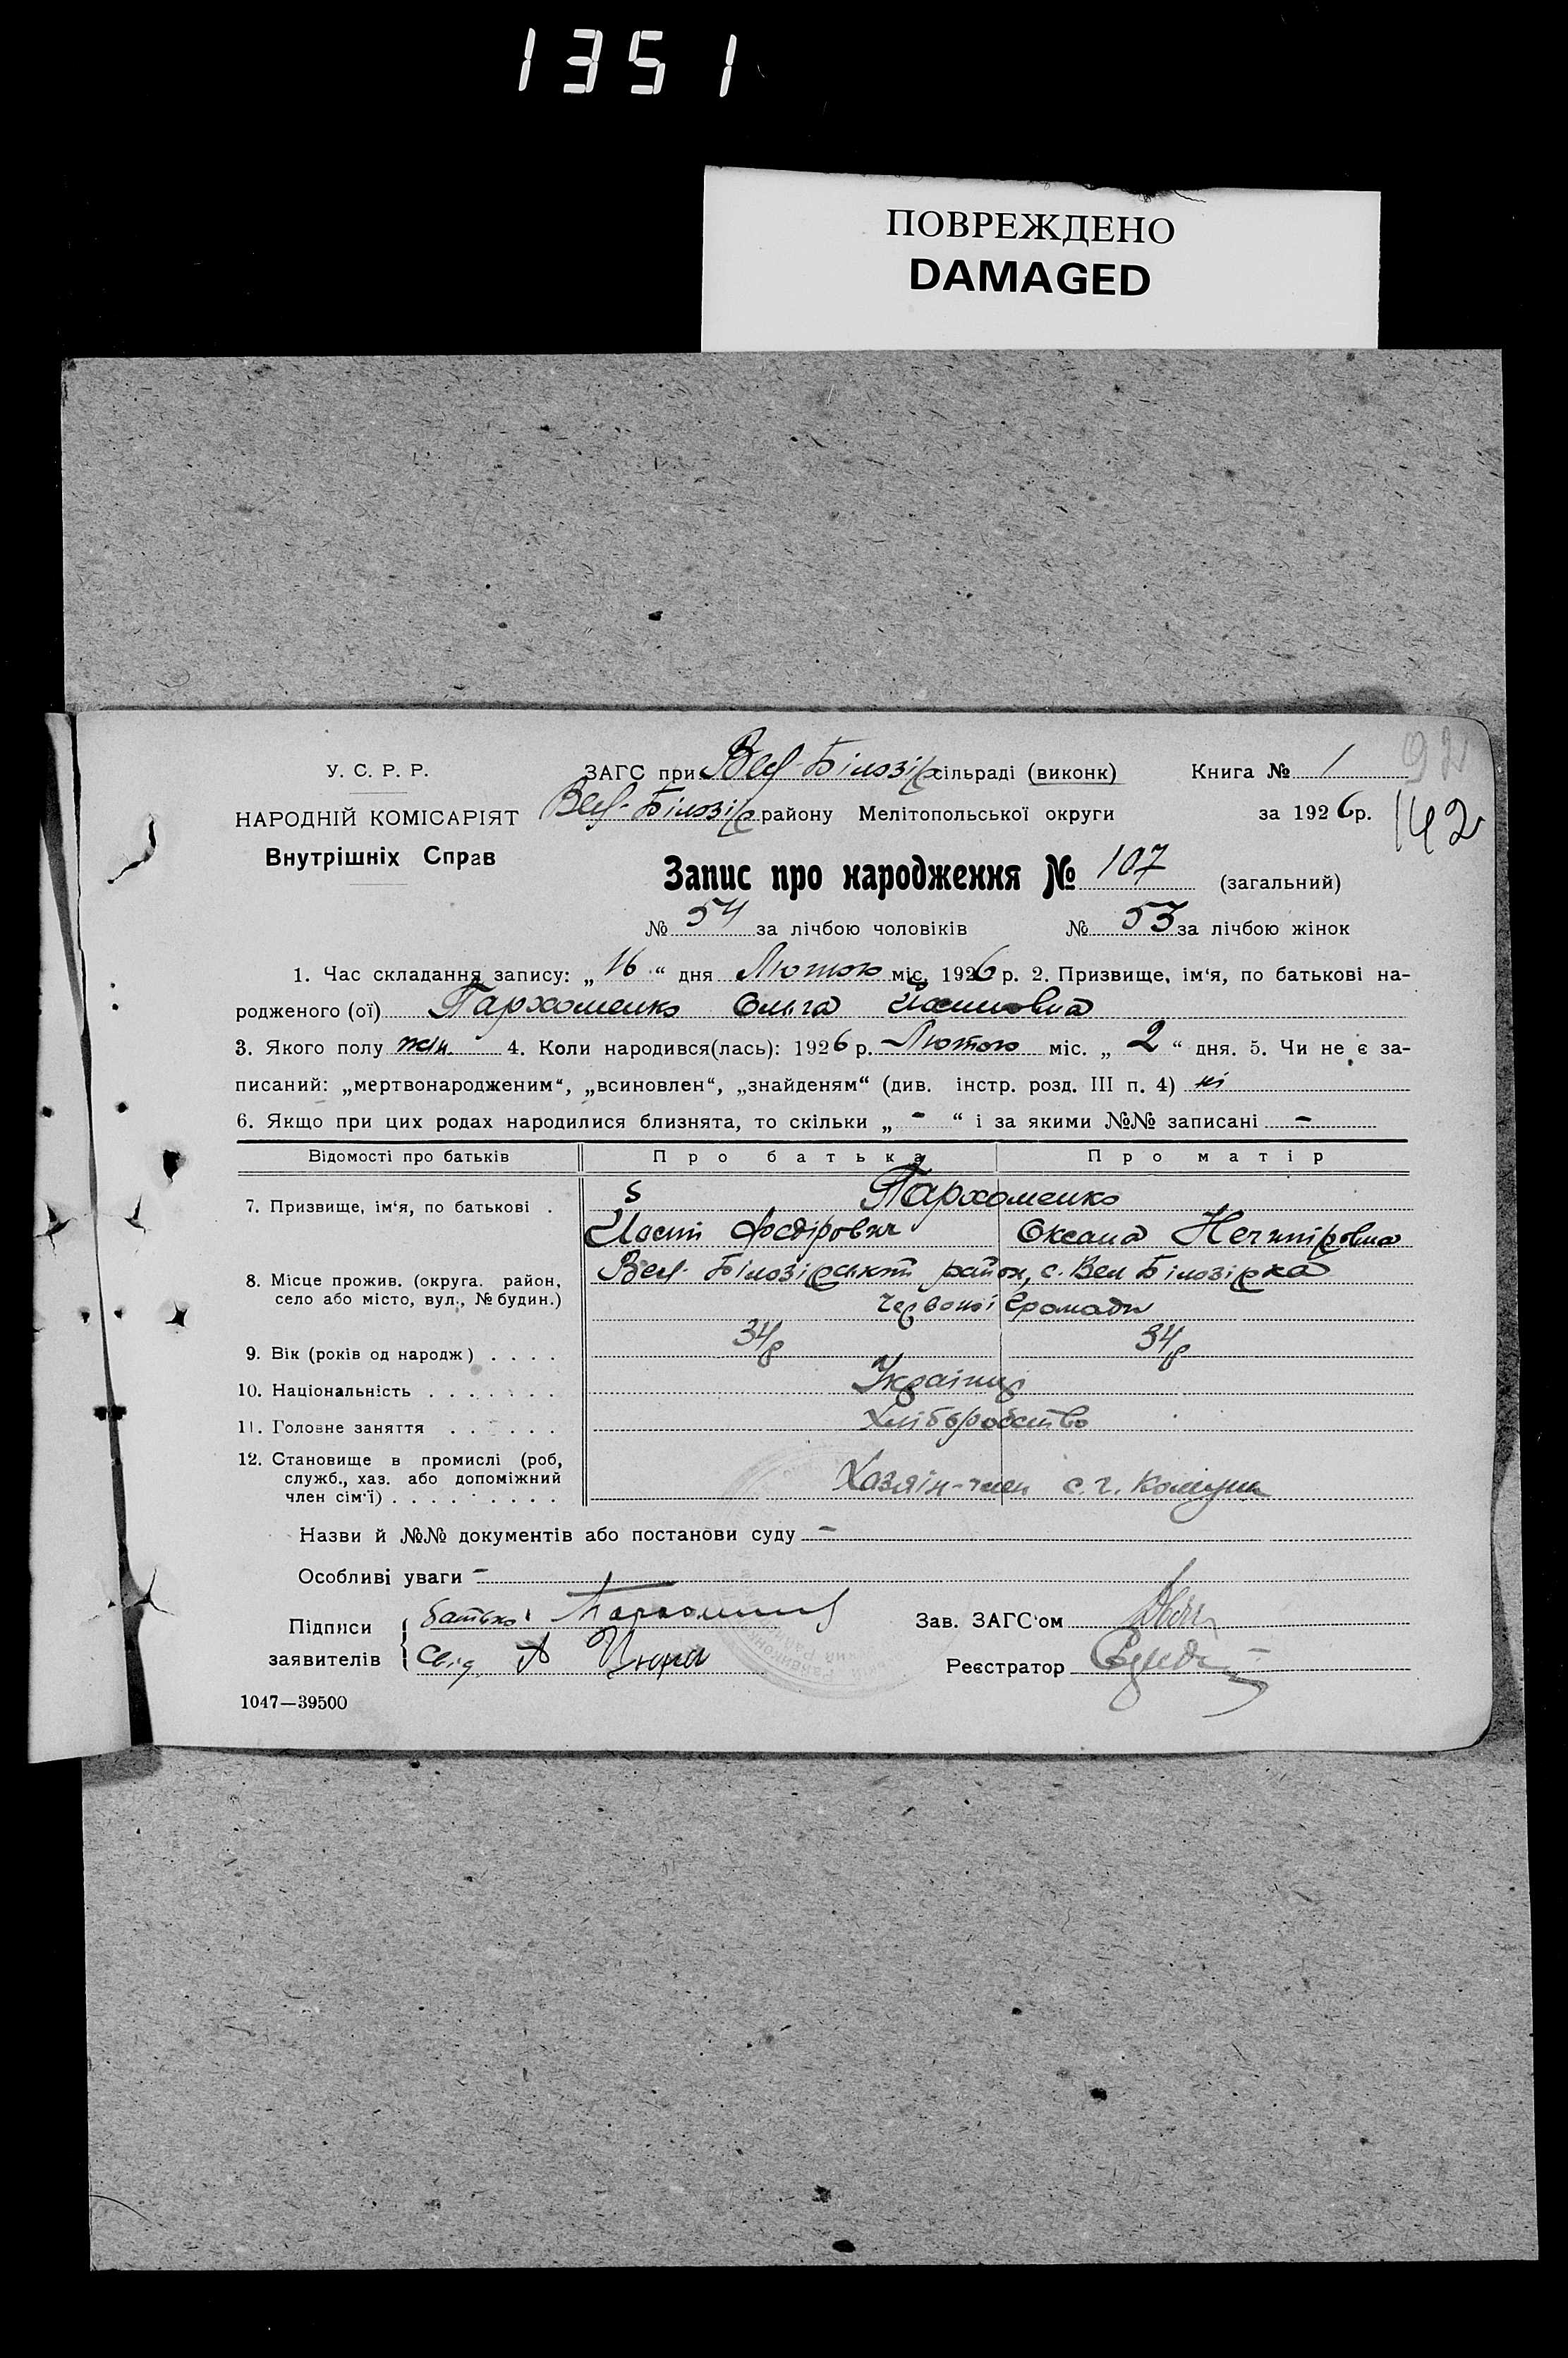 1351
ПОВРЕЖДЕНО
DAMAGED
92
142
У. С. Р. Р.
НАРОДНІЙ КОМІСАРІЯТ
Внутрішніх Справ
ЗАГС при Вел-Білозір сільраді (виконк) Книга № 1
Вел-Білозір району Мелітопольської округи за 1926 р.
Запис про народження № 107 (загальний)
№ 54 за лічбою чоловіків № 53 за лічбою жінок
1. Час складання запису: „ 16 “ дня Лютого міс. 1926 р. 2. Призвище, ім‘я, по батькові на-
родженого (ої) Пархоменко Ольга
3. Якого полу жін. 4. Коли народився(лась): 1926 р. Лютого міс. „ 2 “ дня. 5. Чи не є за-
писаний: „мертвонародженим“, „всиновлен“, „знайденям“ (див. інстр. розд. III п. 4) ні
6. Якщо при цих родах народилися близнята, то скільки „ - “ і за якими №№ записані -
Відомості про батьків Про батька Про матір
7. Призвище, ім‘я, по батькові . Пархоменко
Федірович Оксана Нечипіровна
8. Місце прожив. (округа. район, село або місто, вул., № будин.) Вел. Білозірський район, с. Вел Білозірка
Червоної Громади
9. Вік (років од народж) . . . . 34 р 34 р
10. Національність . . . . . . . Українці
11. Головне заняття . . . . . . Хліборобство
12. Становище в промислі (роб,
служб., хаз. або допоміжний
член сім‘ї) . . . . . . . . . Хазяін-член с. г. Комуни
Назви й №№ документів або постанови суду -
Особливі уваги -
Підписи заявителів батько: Пархоменко Зав. ЗАГС‘ом
Свід. Реєстратор
1047—39500